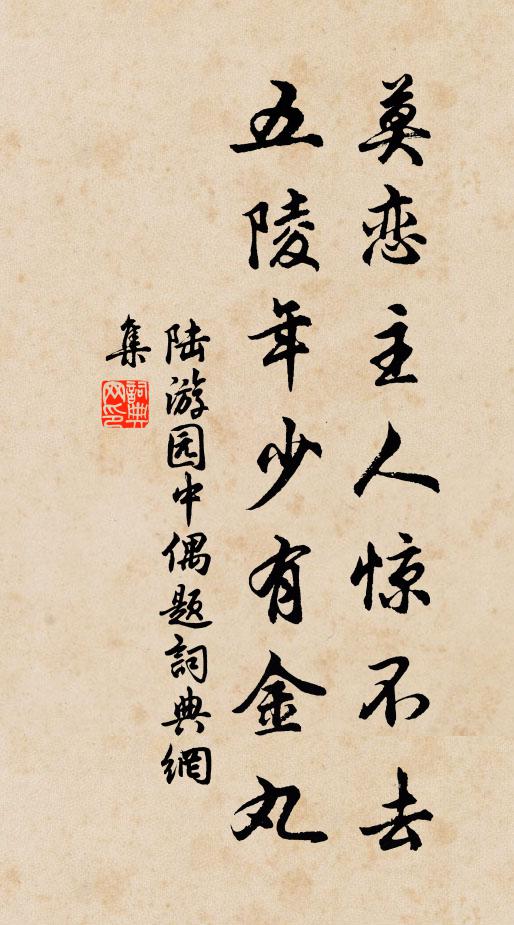 莫恋主人惊不去
五陵年少有金丸
陆游园中偶题詞典網
集
詞典
网印